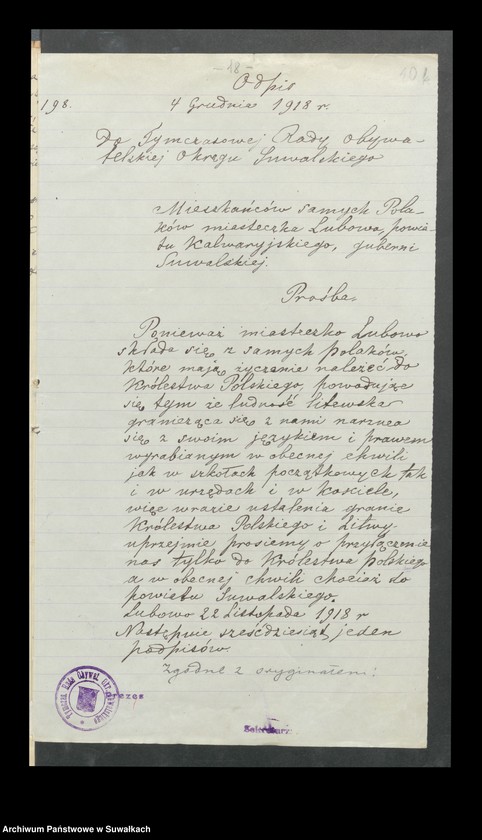 - 18 -
Odpis
198.
4 Grudnia 1918 r.
Do Tymczasowej Rady Obywa-
telskiej Okręgu Suwalskiego
Mieszkańców samych Pola-
ków miasteczka Lubowo, powia-
tu Kalwaryjskiego, guberni
Suwalskiej.
Prośba.
Ponieważ miasteczko Lubowo
składa się z samych polaków,
które mają życzenie należeć do
Królestwa Polskiego, powodując
się tym że ludność litewska
granicząca się z nami narzuca
się z swoim językiem i prawem
wyrabianym w obecnej chwili
jak w szkołach początkowych tak
i w urzędach i w kościele,
więc w razie ustalenia granic
Królestwa Polskiego i Litwy
uprzejmie prosiemy o przyłączenie
nas tylko do Królestwa Polskiego
a w obecnej chwili chociaż do
powiatu Suwalskiego.
Lubowo 22 Listopada 1918 r
Następnie sześćdziesiąt jeden
podpisów.
Zgodne z oryginałem:
Prezes
Sekretarz:
Archiwum Państwowe w Suwałkach